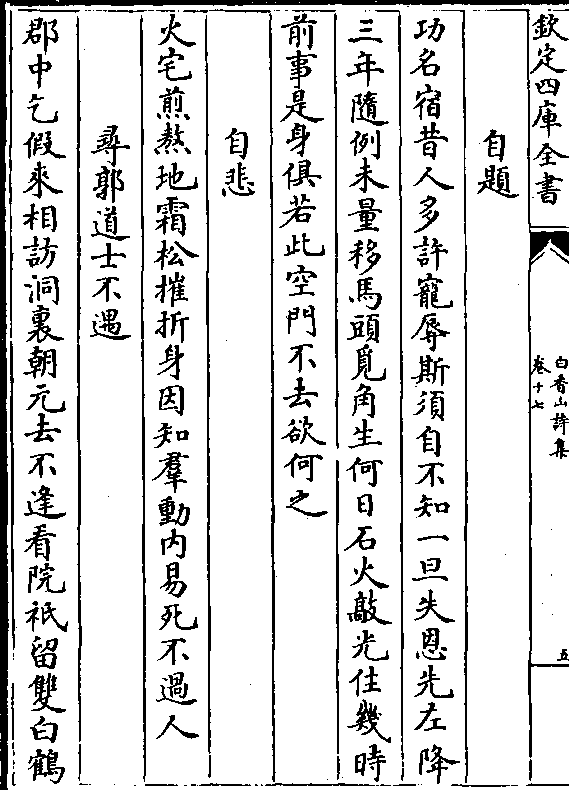 欽定四庫全書
白香山詩集
卷十七
五
自題
功名宿昔人多許寵辱斯須自不知一旦失恩先左降
三年隨例未量移馬頭覓角生何日石火敲光住幾時
前事是身俱若此空門不去欲何之
自悲
火宅煎熬地霜松摧折身因知羣動内易死不過人
尋郭道士不遇
郡中乞假來相訪洞裏朝元去不逢看院祇留雙白鶴